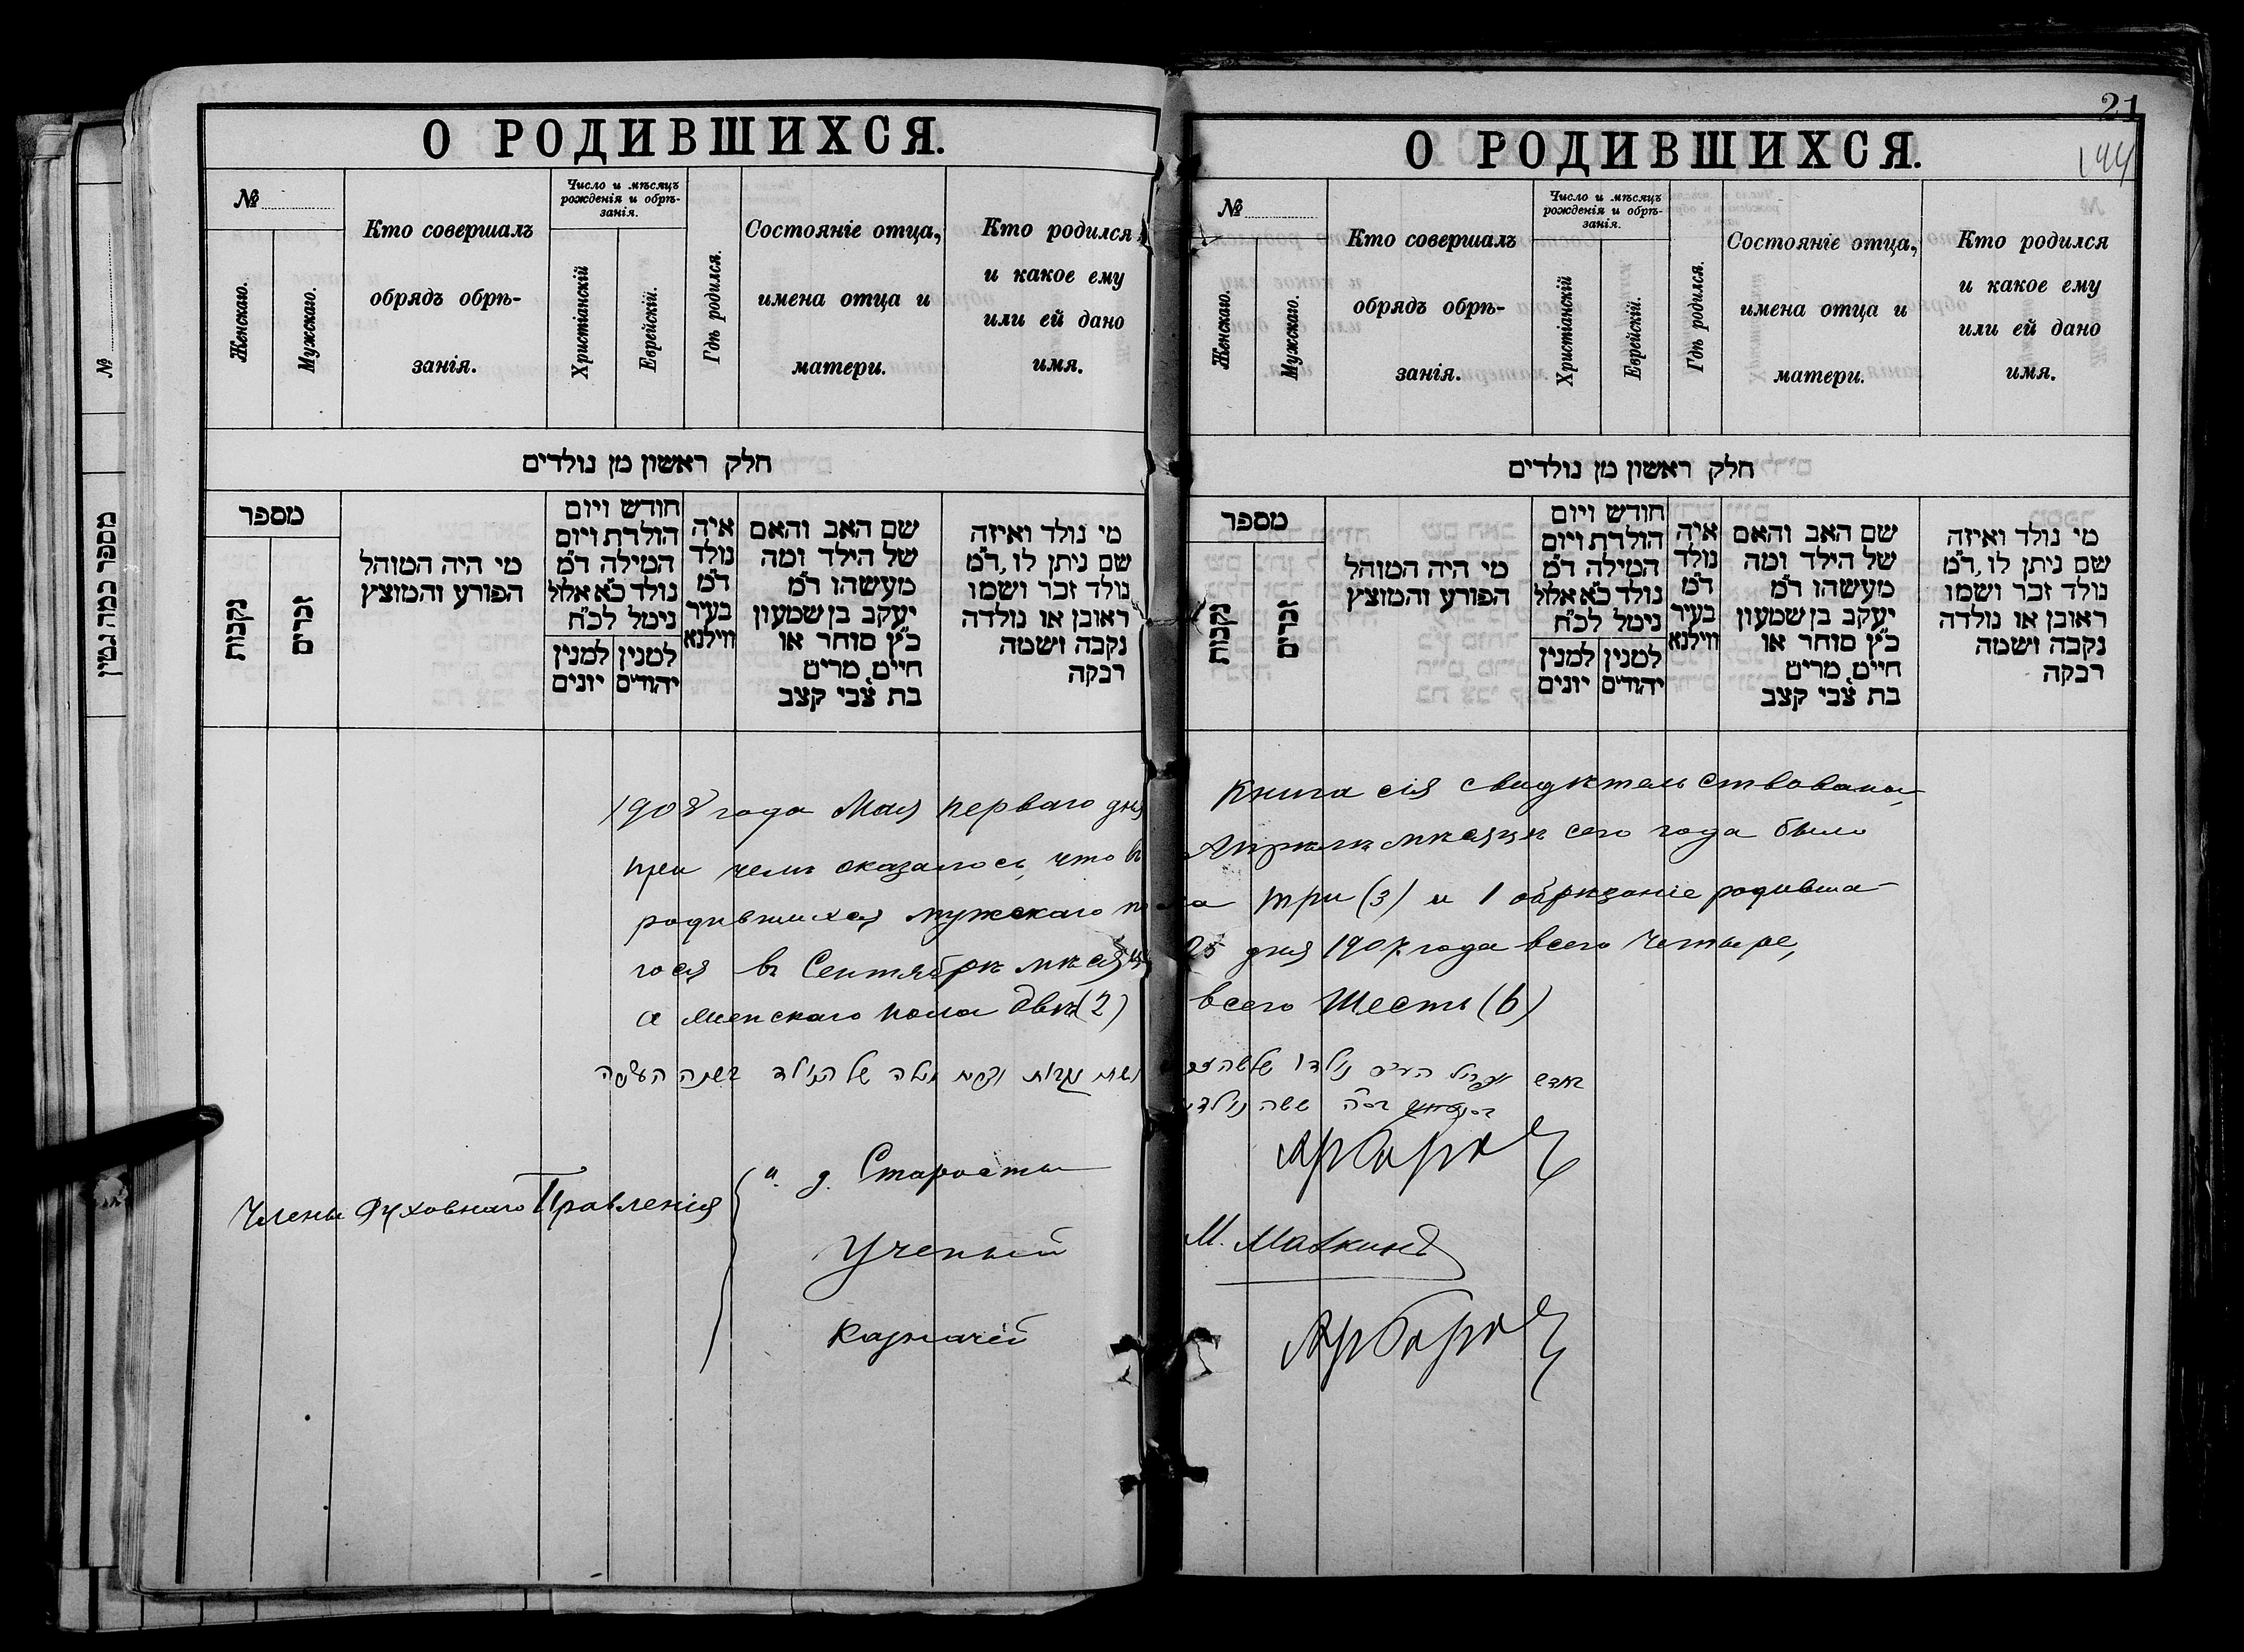 О РОДИВШИХСЯ.
№
Женскаго.
Мужскаго.
Кто совершалъ
обрядъ обрѣ-
занія.
Число и мѣсяцъ
рожденія и обрѣ-
занія.
Христіанскій
Еврейскій.
Гдѣ родился.
Состояніе отца,
имена отца и
матери.
Кто родился
и какое ему
или ей дано
имя.
חלק ראשון מן נולדים
מספר
נקבות
זכרים
מי היה המוהל
הפורע והמוצץ
חודש ויום
הולדת ויום
המילה ד״מ
נולד כ״א אלול
נימל לכ״ח
למנין
יונים
למנין
יהודים
איה
נולד
ד״מ
בעיר
ווילנא
שם האב והאם
של הילד ומה
מעשהו ד״מ
יעקב בן שמעון
כ״ץ סוחר או
חיים, מרים
בת צבי קצב
מי נולד ואיזה
שם ניתן לו, ד״מ
נולד זכר ושמו
ראובן או נולדה
נקבה ושמה
רבקה
№
מספר כמה גטין
21
144
О РОДИВШИХСЯ.
№
Женскаго.
Мужскаго.
Кто совершалъ
обрядъ обрѣ-
занія.
Число и мѣсяцъ
рожденія и обрѣ-
занія.
Христіанскій
Еврейскій.
Гдѣ родился.
Состояніе отца,
имена отца и
матери.
Кто родился
и какое ему
или ей дано
имя.
חלק ראשון מן נולדים
מספר
נקבות
זכרים
מי היה המוהל
הפורע והמוצץ
חודש ויום
הולדת ויום
המילה ד״מ
נולד כ״א אלול
נימל לכ״ח
למנין
יונים
למנין
יהודים
איה
נולד
ד״מ
בעיר
ווילנא
שם האב והאם
של הילד ומה
מעשהו ד״מ
יעקב בן שמעון
כ״ץ סוחר או
חיים, מרים
בת צבי קצב
מי נולד ואיזה
שם ניתן לו, ד״מ
נולד זכר ושמו
ראובן או נולדה
נקבה ושמה
רבקה
1908 года Мая перваго дня Книга сія свидѣтельствована,
при чемъ оказалось, что въ Апрѣлѣ мѣсяцѣ сего года было
родившихся мужскаго пола три (3) и 1 обрѣзаніе родивша-
гося въ Сентябрѣ мѣсяцѣ 25 дня 1907 года всего четыре,
а женскаго пола двѣ (2) всего шесть (6)
חדש אפריל נולדו שלשה
של הנולד בשנה העברה
ששה נולדים
Члены Духовнаго Правленія
и. д. Старосты
Ученый М. Малкинъ
Казначей